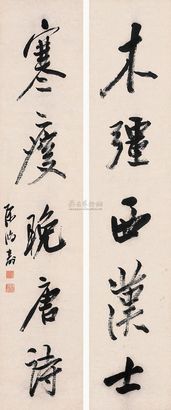 木彊西漢士
寒瘦晚唐詩